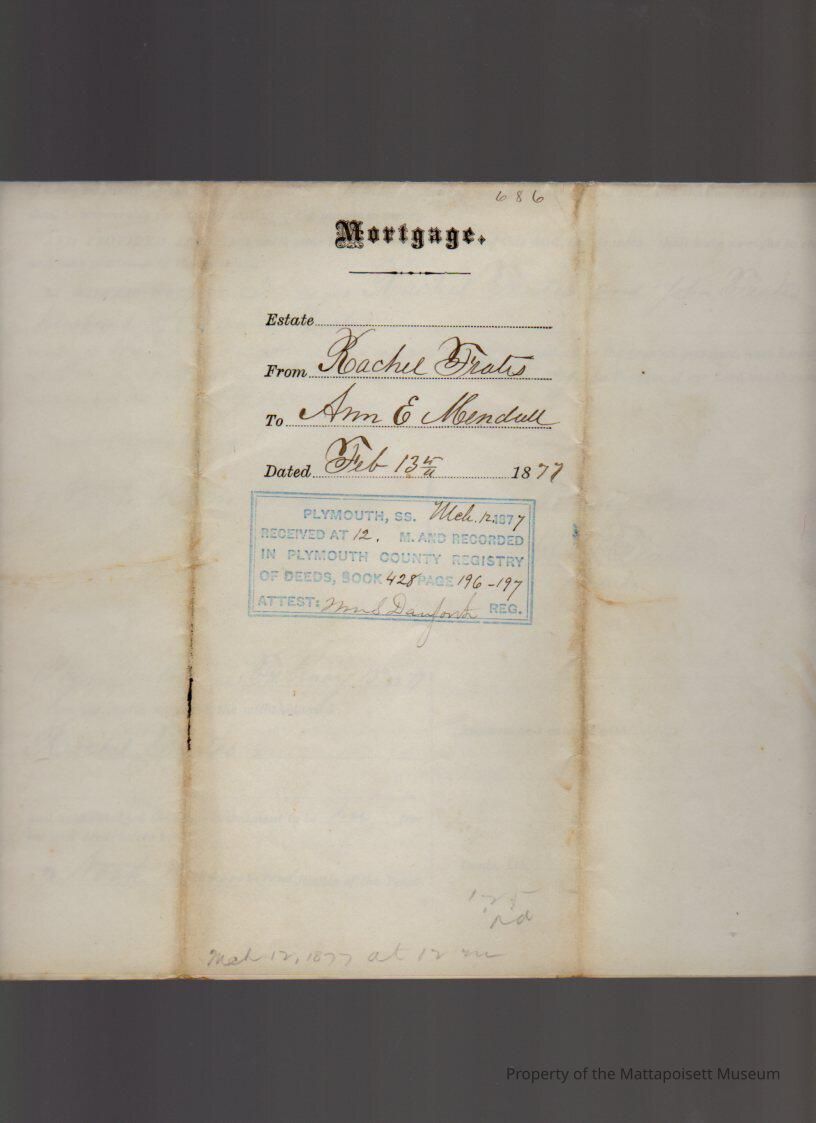 686
Mortgage.
Estate
From Rachel Frates
To Ann E Mendall
Dated Feb 13th 1877
PLYMOUTH, SS. Mch. 12. 1877
RECEIVED AT 12. M. AND RECORDED
IN PLYMOUTH COUNTY REGISTRY
OF DEEDS, BOOK 428 PAGE 196-197
ATTEST: Wm S Danforth REG.
125
pd
Mch 12, 1877 at 12 m
Property of the Mattapoisett Museum